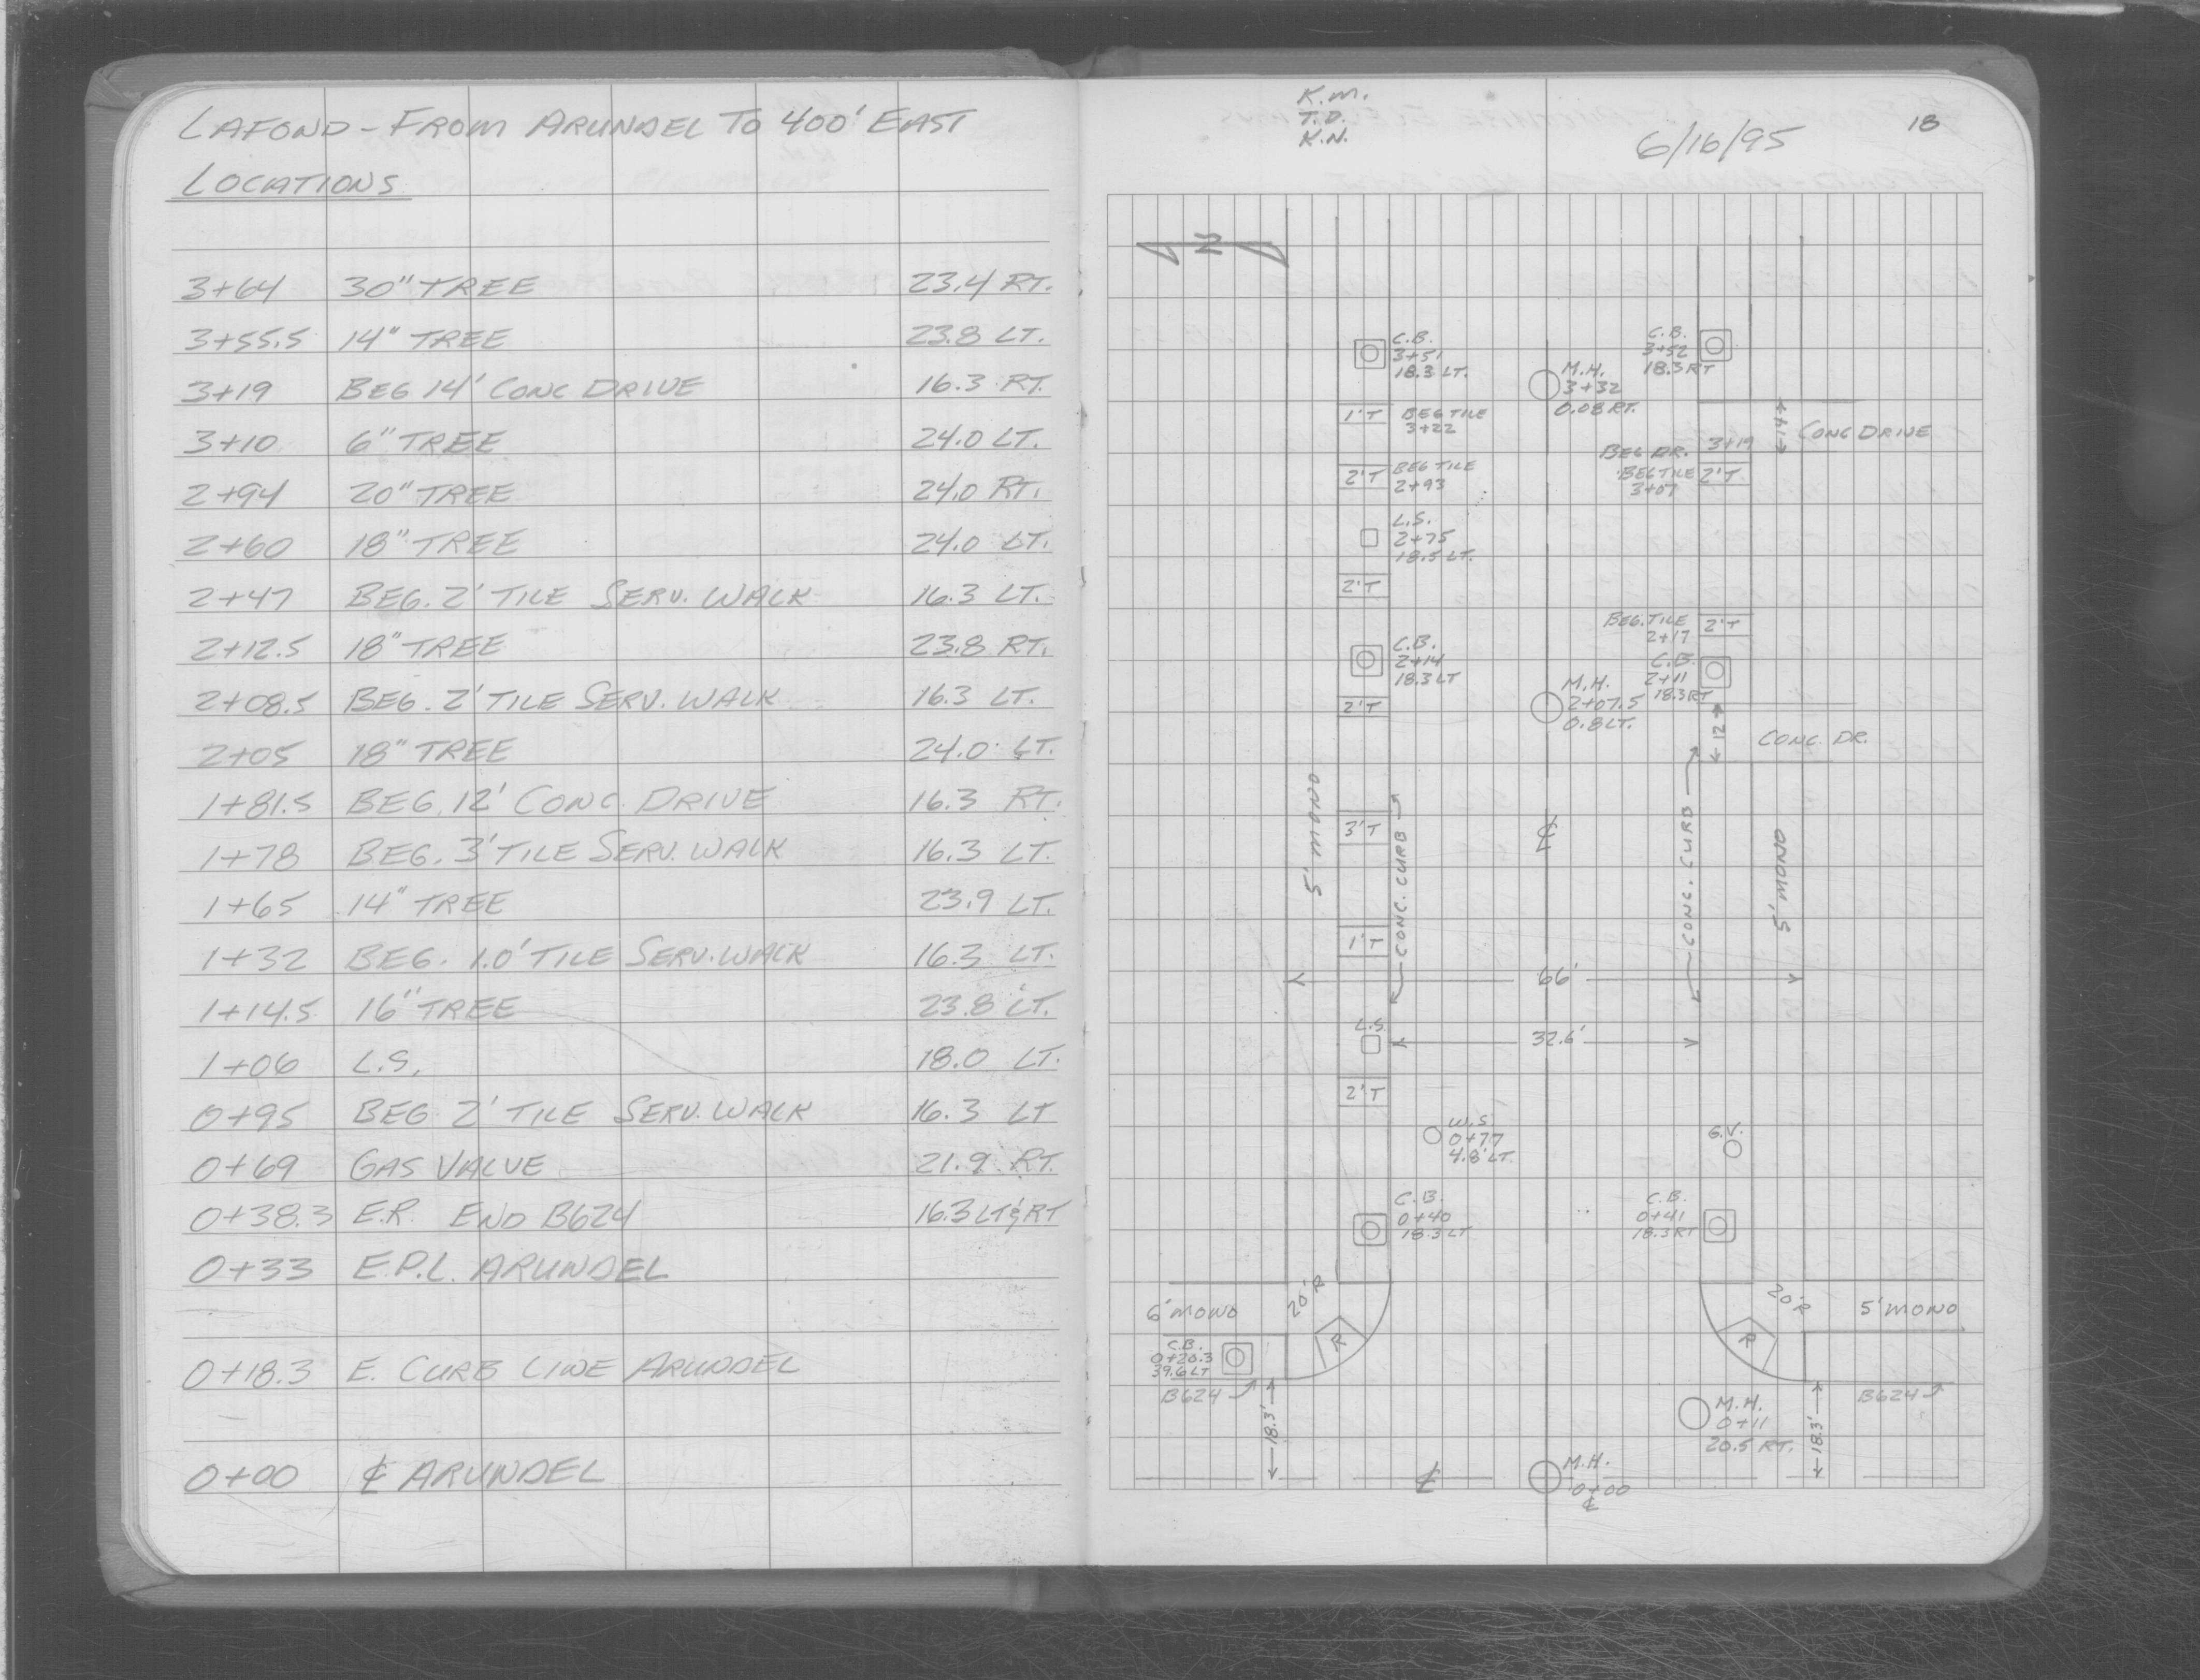 LAFOND - FROM ARUNDEL TO 400' EAST
LOCATIONS
3+64 30" TREE 23.4 RT.
3+55.5 14" TREE 23.8 LT.
3+19 BEG 14' CONC DRIVE 16.3 RT.
3+10 6" TREE 24.0 LT.
2+94 20" TREE 24.0 RT.
2+60 18" TREE 24.0 LT.
2+47 BEG. 2' TILE SERV. WALK 16.3 LT.
2+12.5 18" TREE 23.8 RT.
2+08.5 BEG. 2' TILE SERV. WALK 16.3 LT.
2+05 18" TREE 24.0 LT.
1+81.5 BEG. 12' CONC. DRIVE 16.3 RT.
1+78 BEG. 3' TILE SERV. WALK 16.3 LT.
1+65 14" TREE 23.9 LT.
1+32 BEG. 1.0' TILE SERV. WALK 16.3 LT.
1+14.5 16" TREE 23.8 LT.
1+06 L.S. 18.0 LT.
0+95 BEG 2' TILE SERV. WALK 16.3 LT
0+69 GAS VALVE 21.9 RT.
0+38.3 E.R. END B624 16.3 LT & RT
0+33 E.P.L. ARUNDEL
0+18.3 E. CURB LINE ARUNDEL
0+00 ℄ ARUNDEL
K.M.
T.D.
K.N.
6/16/95
18
N
C.B.
3+51
18.3 LT.
C.B.
3+52
18.3 RT
M.H.
3+32
0.08 RT.
1'T
BEG TILE
3+22
14
CONC DRIVE
BEG DR. 3+19
2'T
BEG TILE
2+93
BEG TILE 2'T
3+07
L.S.
2+75
18.5 LT.
2'T
BEG. TILE 2'T
2+17
C.B.
2+14
18.3 LT
C.B.
2+11
18.3 RT
M.H.
2+07.5
0.8 LT.
2'T
12
CONC. DR.
5' MONO
3'T
CONC. CURB
℄
CONC. CURB
5' MONO
1'T
66'
L.S.
32.6'
2'T
W.S
0+77
4.8' LT
G.V.
C.B.
0+40
18.3 LT
C.B.
0+41
18.3 RT
6' MONO
20' R
R
20' R
R
5' MONO
C.B.
0+20.3
39.6 LT
B624
18.3'
M.H.
0+11
20.5 RT.
18.3'
B624
℄
M.H.
0+00
℄